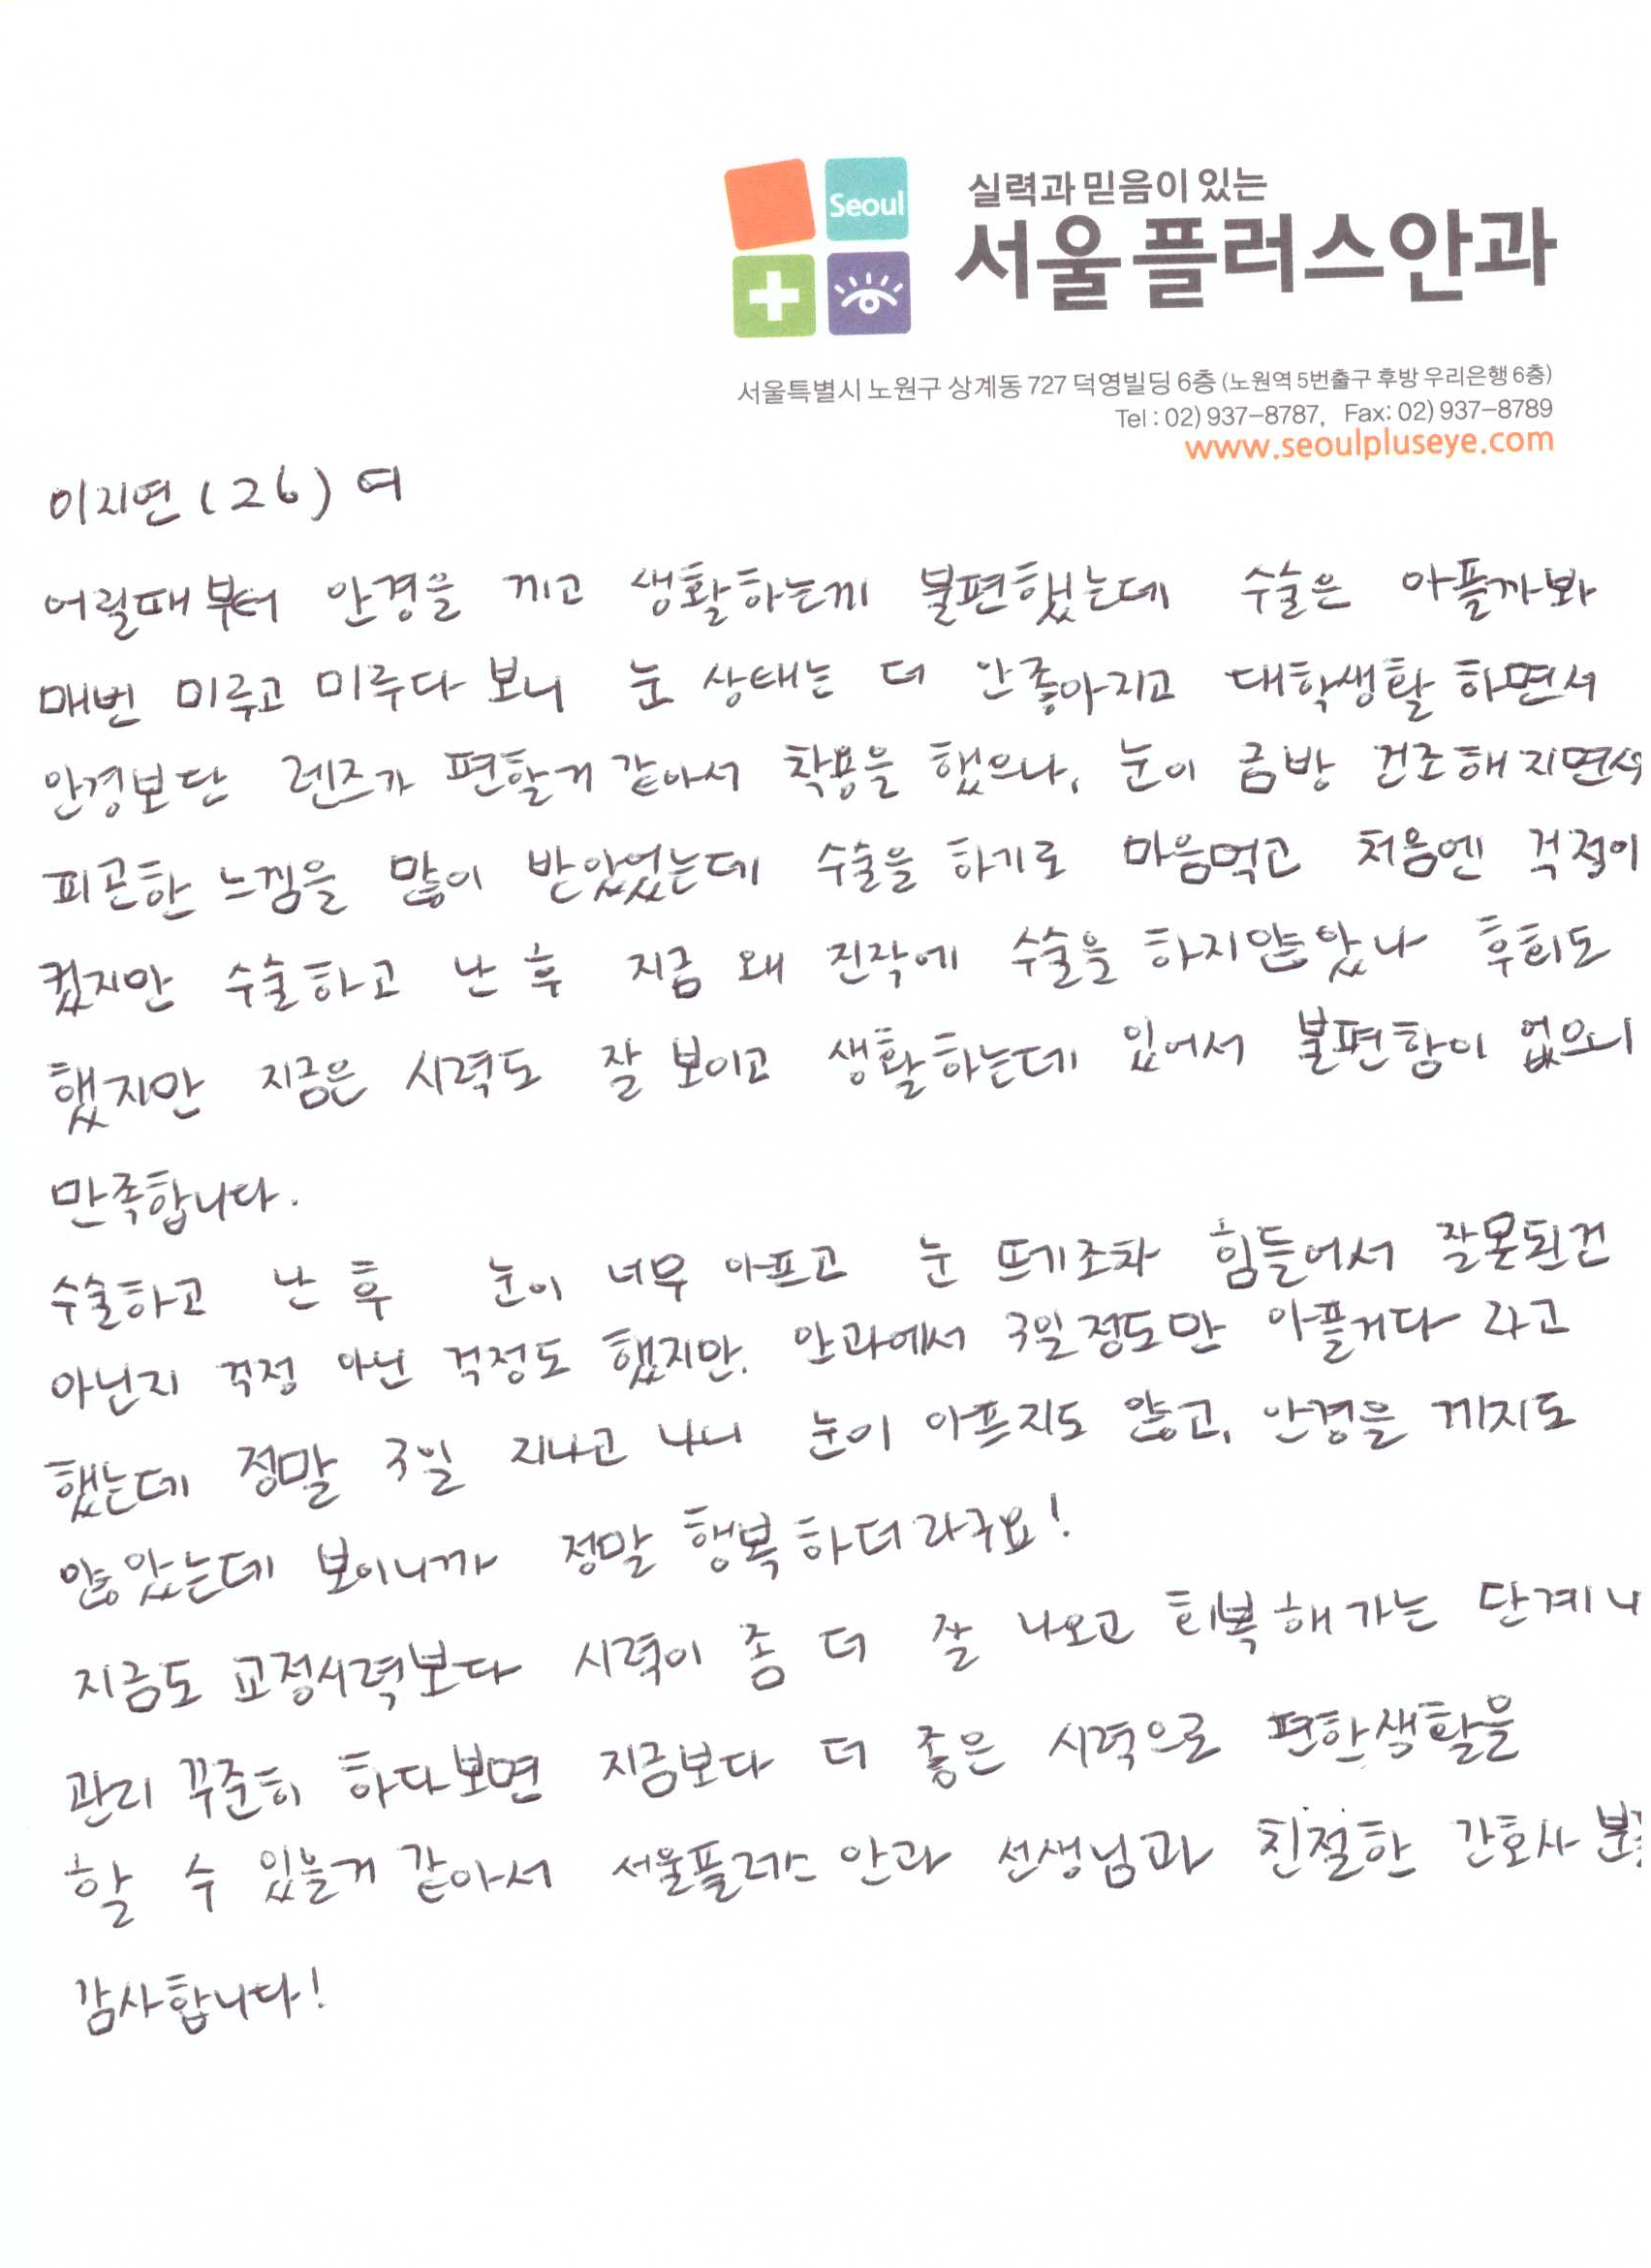 Seoul
실력과 믿음이 있는
서울플러스안과
서울특별시 노원구 상계동 727 덕영빌딩 6층 (노원역 5번출구 후방 우리은행 6층)
Tel : 02) 937-8787, Fax: 02) 937-8789
www.seoulpluseye.com
이지연 (26) 여
어릴때부터 안경을 끼고 생활하는게 불편했는데 수술은 아플까봐
매번 미루고 미루다 보니 눈 상태는 더 안좋아지고 대학생활 하면서
안경보단 렌즈가 편할거 같아서 착용을 했으나, 눈이 금방 건조해지면서
피곤한 느낌을 많이 받았었는데 수술을 하기로 마음먹고 처음엔 걱정이
컸지만 수술하고 난 후 지금 왜 진작에 수술을 하지않았나 후회도
했지만 지금은 시력도 잘 보이고 생활하는데 있어서 불편함이 없으니
만족합니다.
수술하고 난 후 눈이 너무 아프고 눈 뜨기조차 힘들어서 잘못된건
아닌지 걱정 아닌 걱정도 했지만, 안과에서 3일정도만 아플거다 라고
했는데 정말 3일 지나고 나니 눈이 아프지도 않고, 안경을 끼지도
않았는데 보이니까 정말 행복하더라구요!
지금도 교정시력보다 시력이 좀 더 잘 나오고 회복해가는 단계니
관리 꾸준히 하다보면 지금보다 더 좋은 시력으로 편한생활을
할 수 있을거 같아서 서울플러스 안과 선생님과 친절한 간호사
감사합니다!